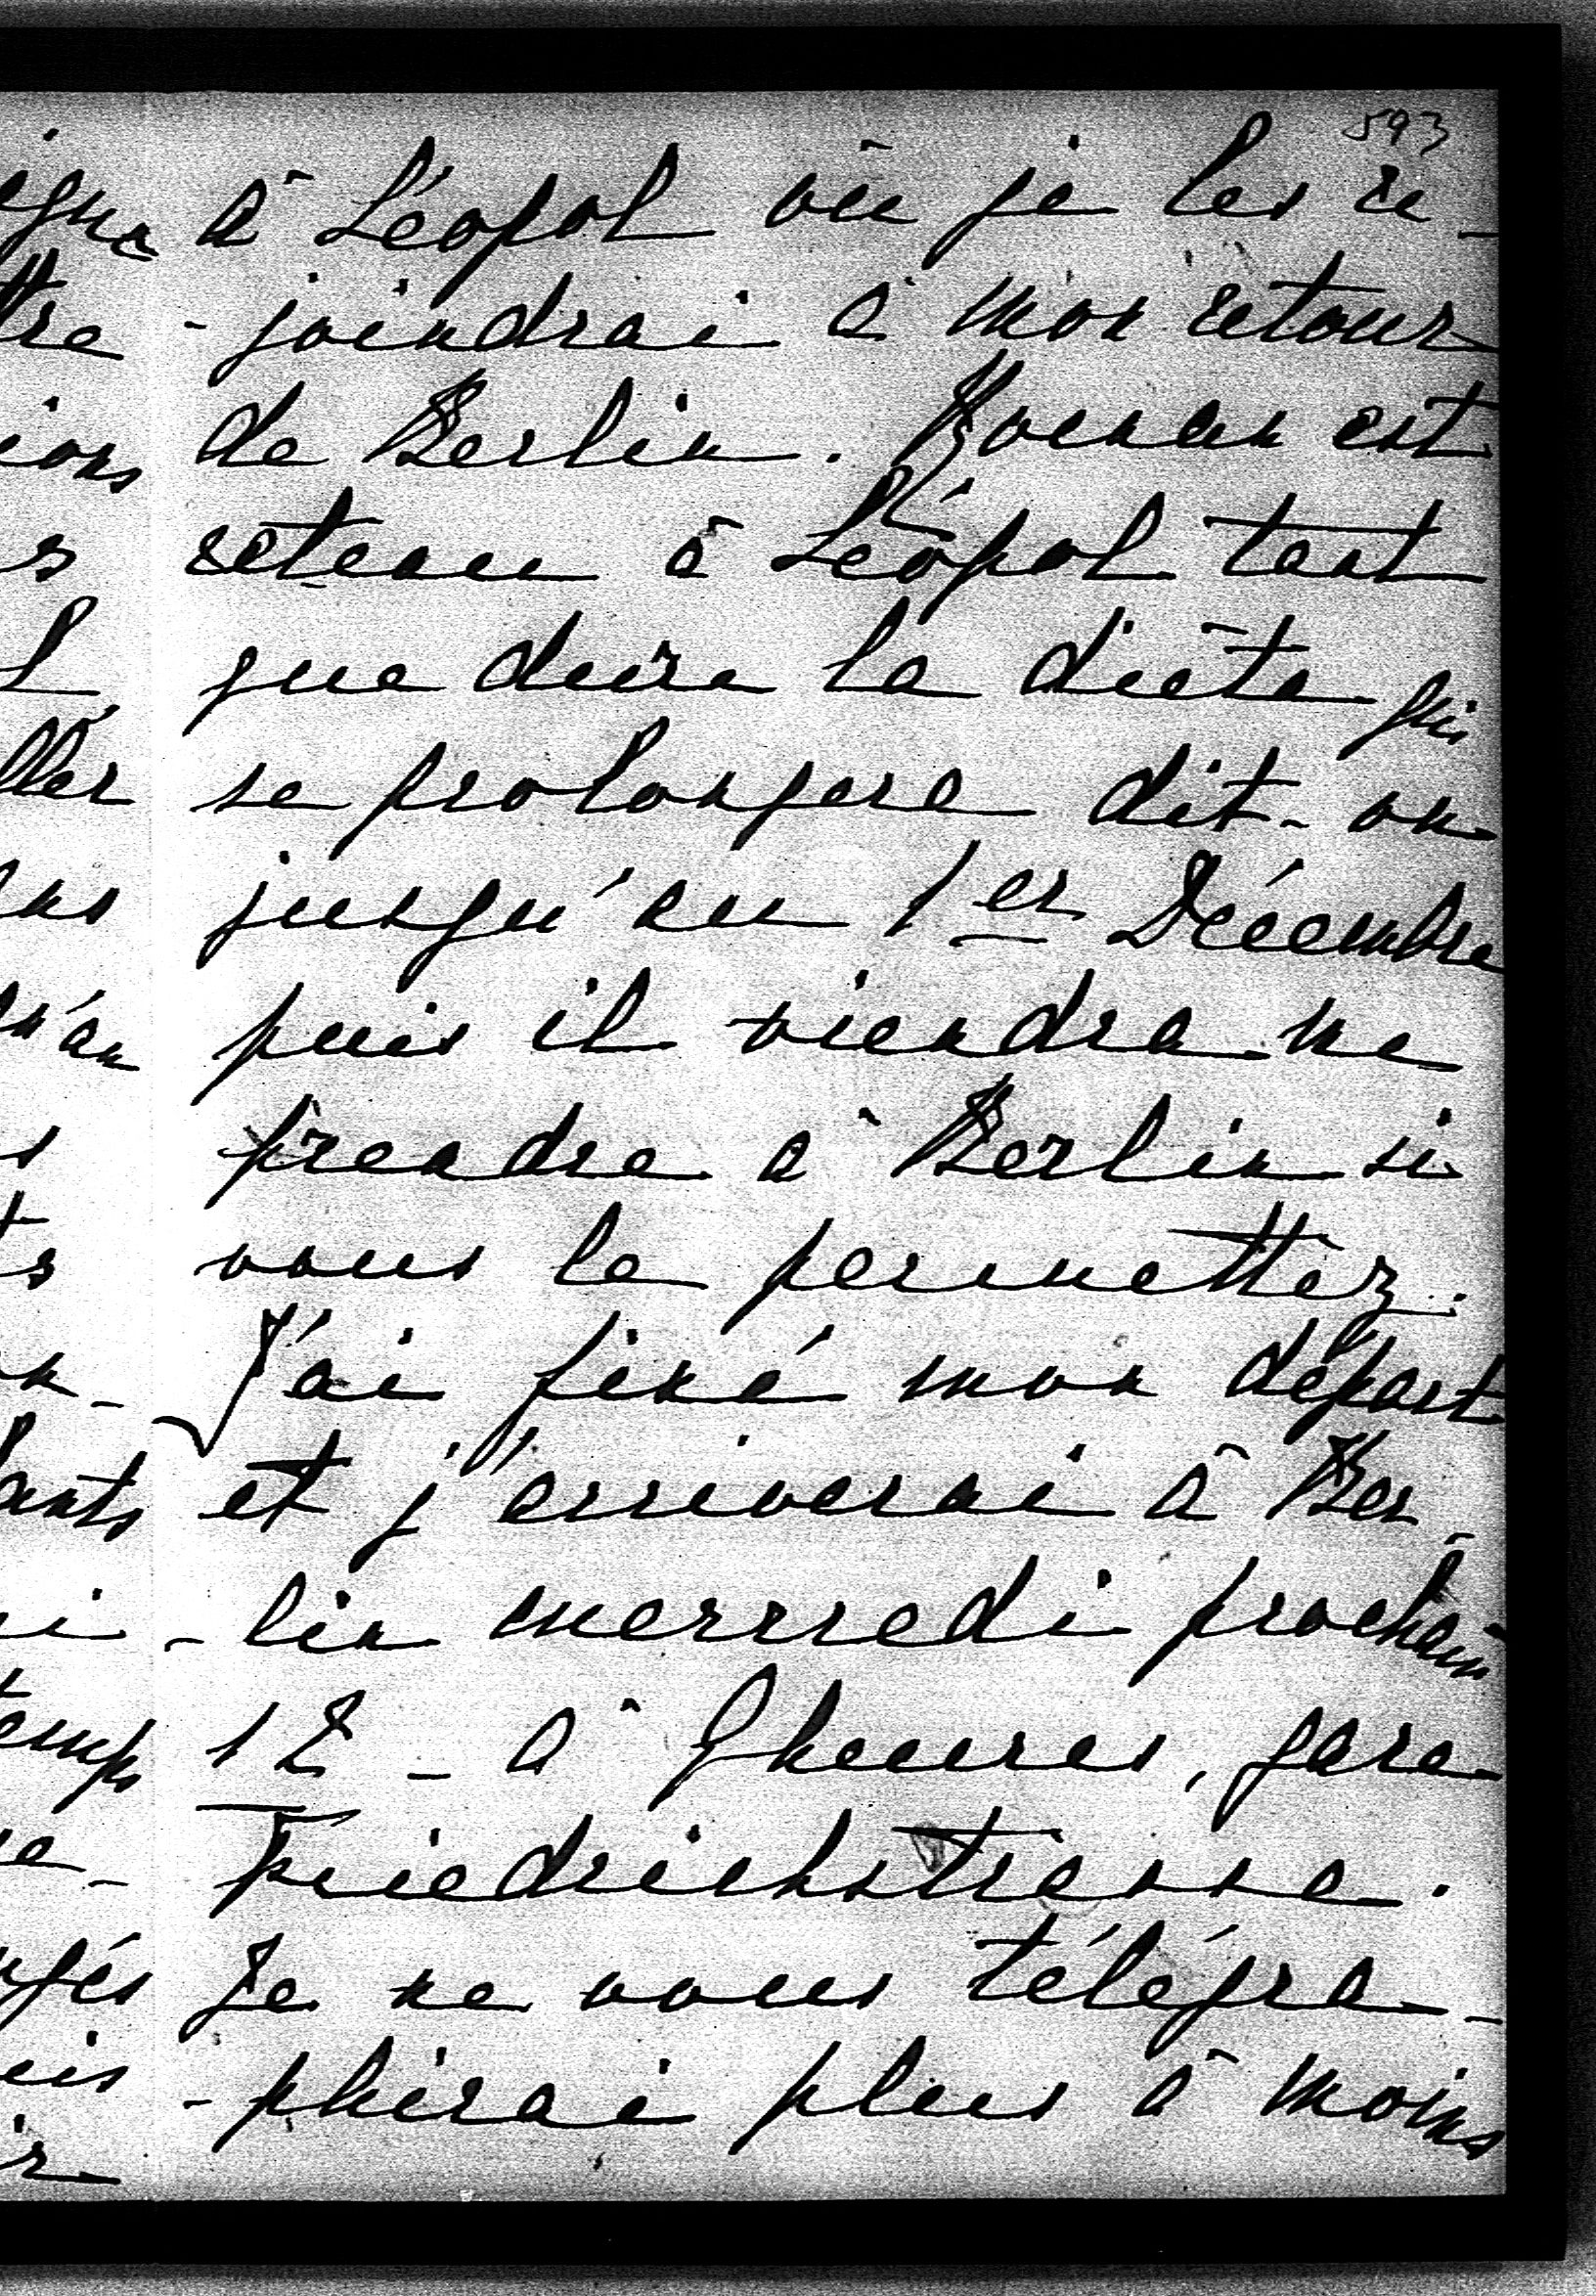 593
à Léopol où je les re-
-joindrai à mon retour
de Berlin. Roman est
retenu à Léopol tant
que dure la diète qui
se prolongera dit-on
jusqu'au 1er Décembre
puis il viendra me
prendre à Berlin si
vous le permettez.
J'ai fixé mon départ
et j'arriverai à Ber-
-lin mercredi prochain
12 - à 9 heures, gare
Friedrichstrasse.
Je ne vous télégra-
-phierai plus à moins